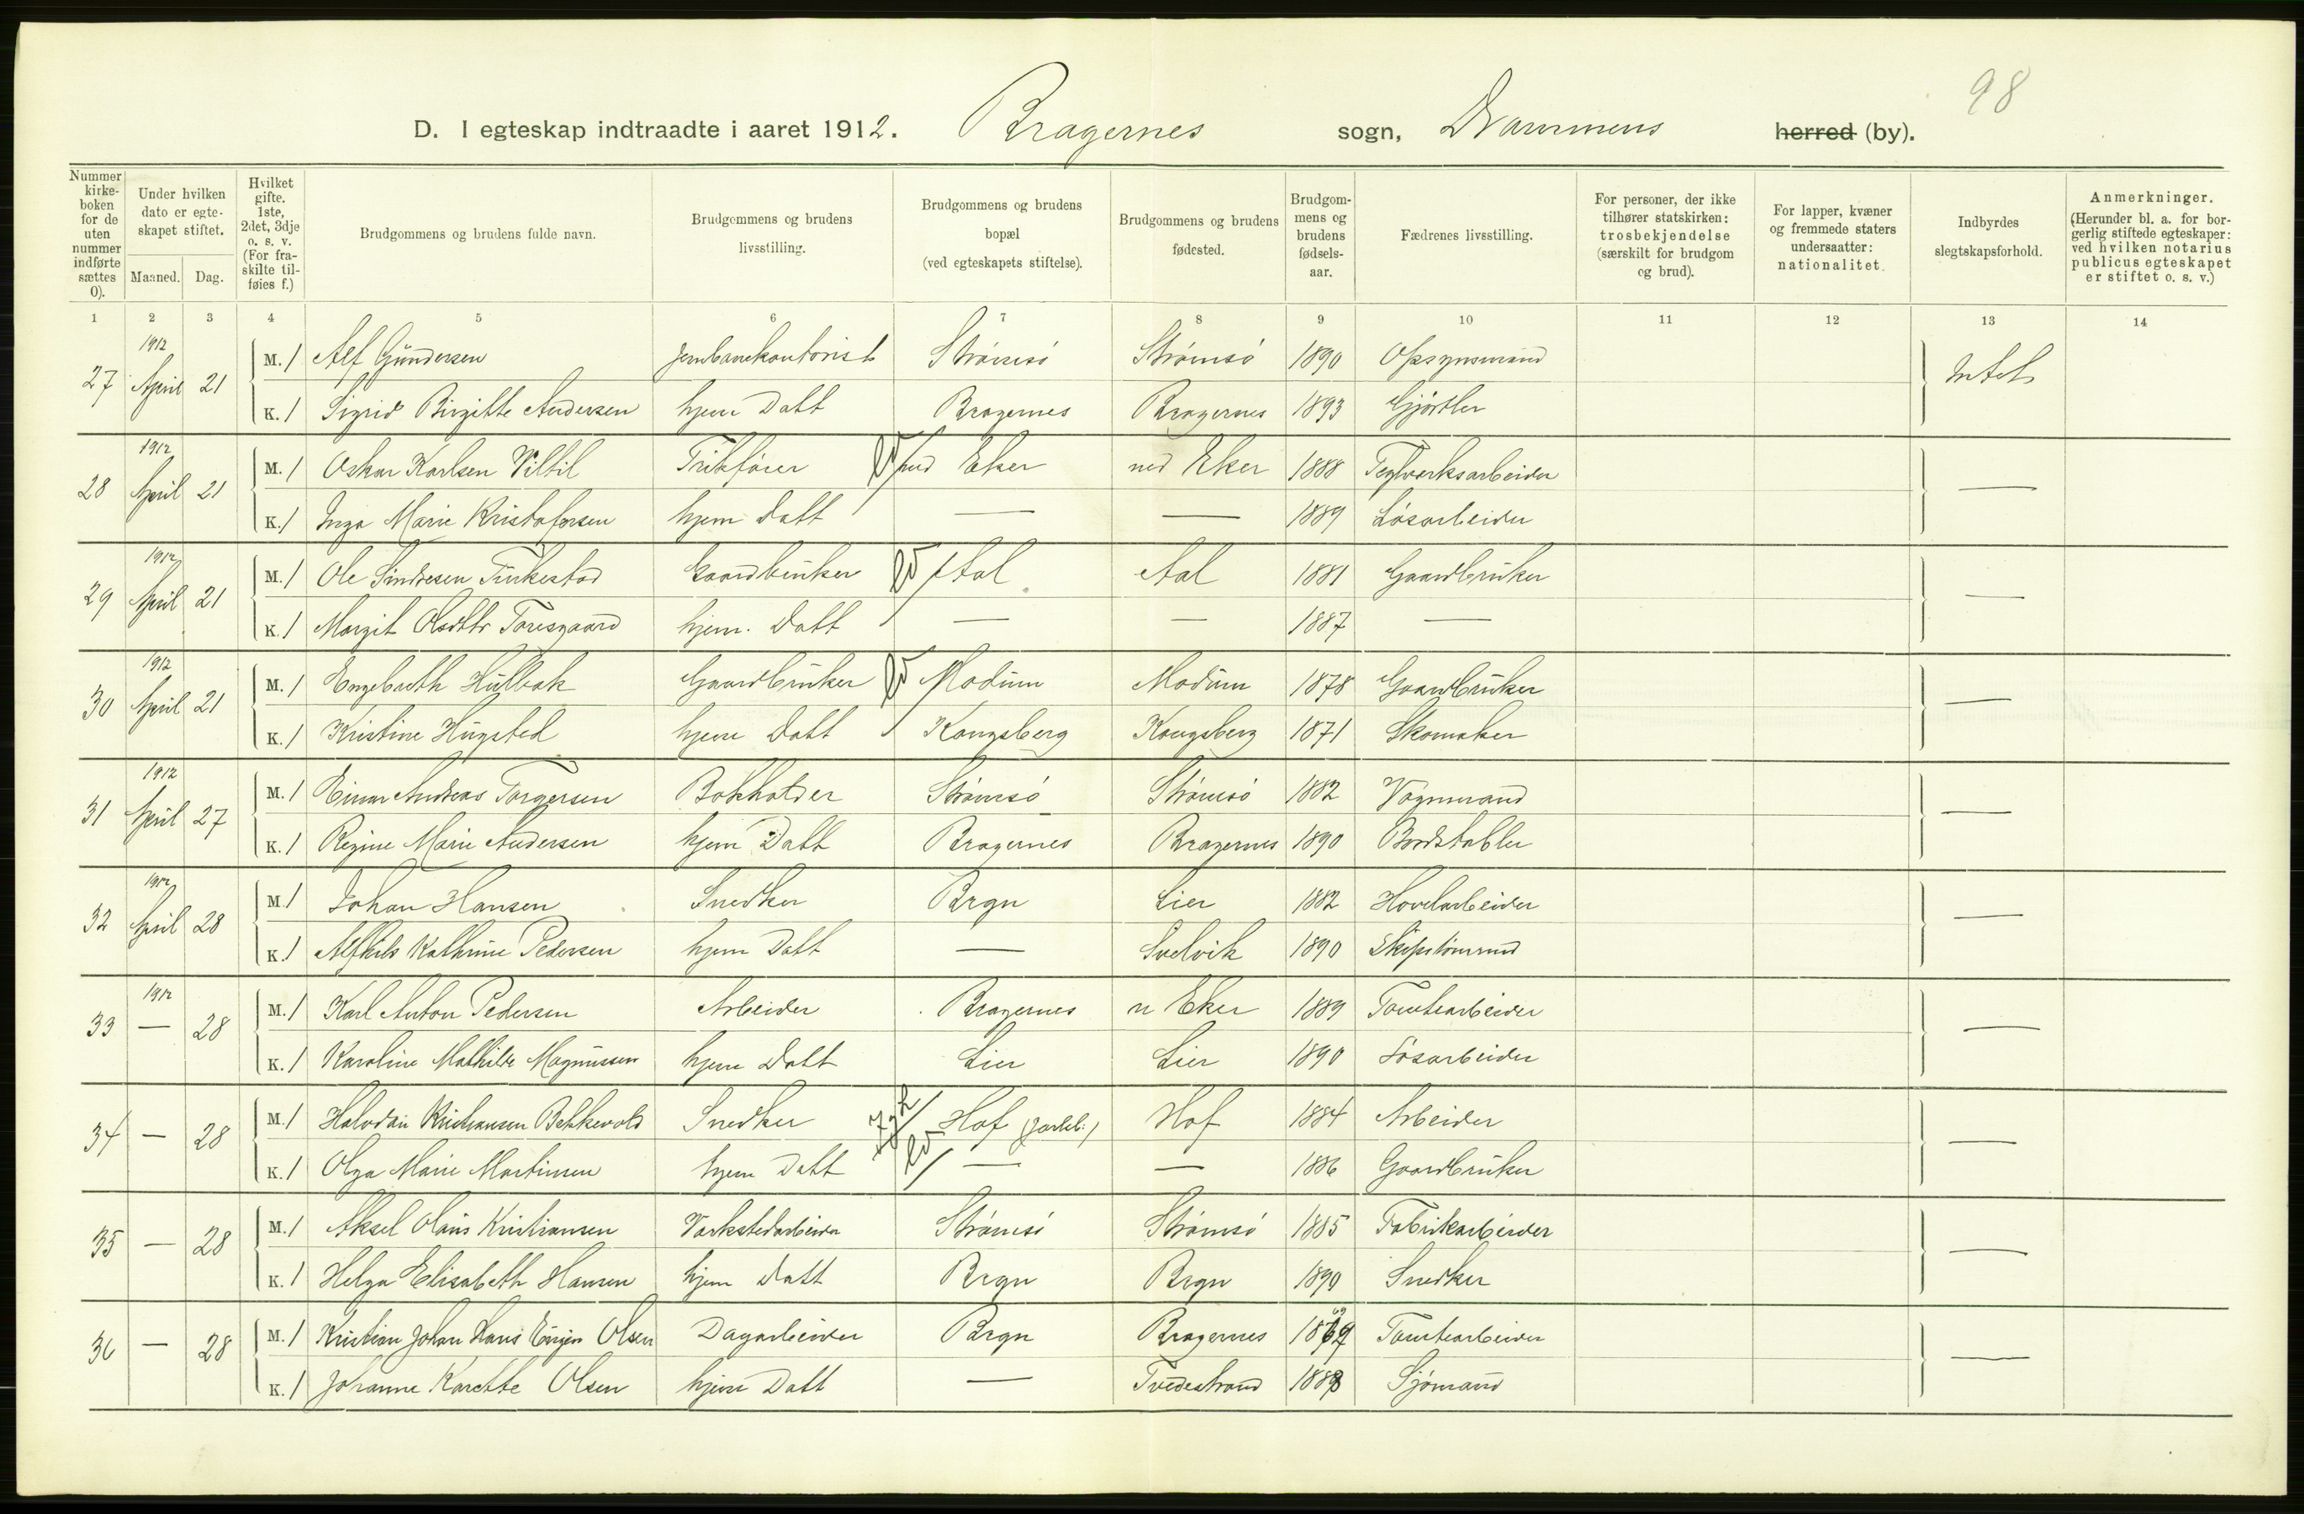 98
D. I egteskap indtraadte i aaret 1912. Bragernes sogn, Drammens herred (by).
Nummer i kirkeboken for de uten nummer indførte sættes 0).
Under hvilken dato er egteskapet stiftet.
Maaned. Dag.
Hvilket gifte. 1ste, 2det, 3dje o. s. v. (For fraskilte tilføies f.)
Brudgommens og brudens fulde navn.
Brudgommens og brudens livsstilling.
Brudgommens og brudens bopæl (ved egteskapets stiftelse).
Brudgommens og brudens fødested.
Brudgommens og brudens fødselsaar.
Fædrenes livsstilling.
For personer, der ikke tilhører statskirken: trosbekjendelse (særskilt for brudgom og brud).
For lapper, kvæner og fremmede staters undersaatter: nationalitet.
Indbyrdes slegtskapsforhold.
Anmerkninger. (Herunder bl. a. for borgerlig stiftede egteskaper: ved hvilken notarius publicus egteskapet er stiftet o. s. v.)
1 2 3 4 5 6 7 8 9 10 11 12 13 14
27 1912 April 21 M. 1 Alf Gundersen Jernbanekontorist Strømsø Strømsø 1890 Opsynsmand Intet
K. 1 Sigrid Birgitte Andersen hjem Datt Bragernes Bragernes 1893 Gjørtler
28 1912 April 21 M. 1 Oskar Karlsen Viltil ned Eker ned Eker 1888 Teglverksarbeider —
K. 1 Inga Marie Kristofersen hjem Datt — — 1889 Løsarbeider
29 1912 April 21 M. 1 Ole Sindresen Turkestad Gaardbruker Aal Aal 1881 Gaardbruker —
K. 1 Margit Olsdttr Toresgaard hjem. Datt — — 1887 —
30 1912 April 21 M. 1 Engebreth Hulbak Gaardbruker Modum Modum 1878 Gaardbruker —
K. 1 Kristine Hugsted hjem Datt Kongsberg Kongsberg 1871 Skomaker
31 1912 April 27 M. 1 Einar Andreas Torgersen Bokholder Strømsø Strømsø 1882 Vognmand —
K. 1 Regine Marie Andersen hjem Datt Bragernes Bragernes 1890 Bordstabler
32 1912 April 28 M. 1 Johan Hansen Snedker Brgn Lier 1882 Høvlarbeider —
K. 1 Alfhild Kathrine Pedersen hjem Datt — Svelvik 1890 Skipstømmnd
33 1912 — 28 M. 1 Karl Anton Pedersen Arbeider Bragernes n Eker 1889 Tomtearbeider —
K. 1 Karoline Mathilde Magnussen hjem Datt Lier Lier 1890 Løsarbeider
34 — 28 M. 1 Halvdan Kristiansen Bekkevold Snedker Hof (Jarlsb:) Hof 1884 Arbeider —
K. 1 Olga Marie Martinsen hjem Datt — — 1886 Gaardbruker
35 — 28 M. 1 Aksel Olaus Kristiansen Verkstedarbeider Strømsø Strømsø 1885 Fabrikarbeider —
K. 1 Helga Elisabeth Hansen hjem Datt Brgn Brgn 1890 Snedker
36 — 28 M. 1 Kristian Johan Hans Eugen Olsen Dagarbeider Brgn Bragernes Tomtearbeider —
K. 1 Johanne Karette Olsen hjem Datt — Tvedestrand 1888 Sjømand